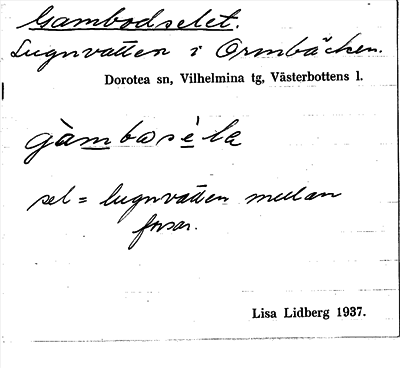 Gambodselet.
Lugnvatten i Ormbäcken.
Dorotea sn, Vilhelmina tg, Västerbottens l.
gàmbosèla
sel = lugnvatten mellan
forsar.
Lisa Lidberg 1937.